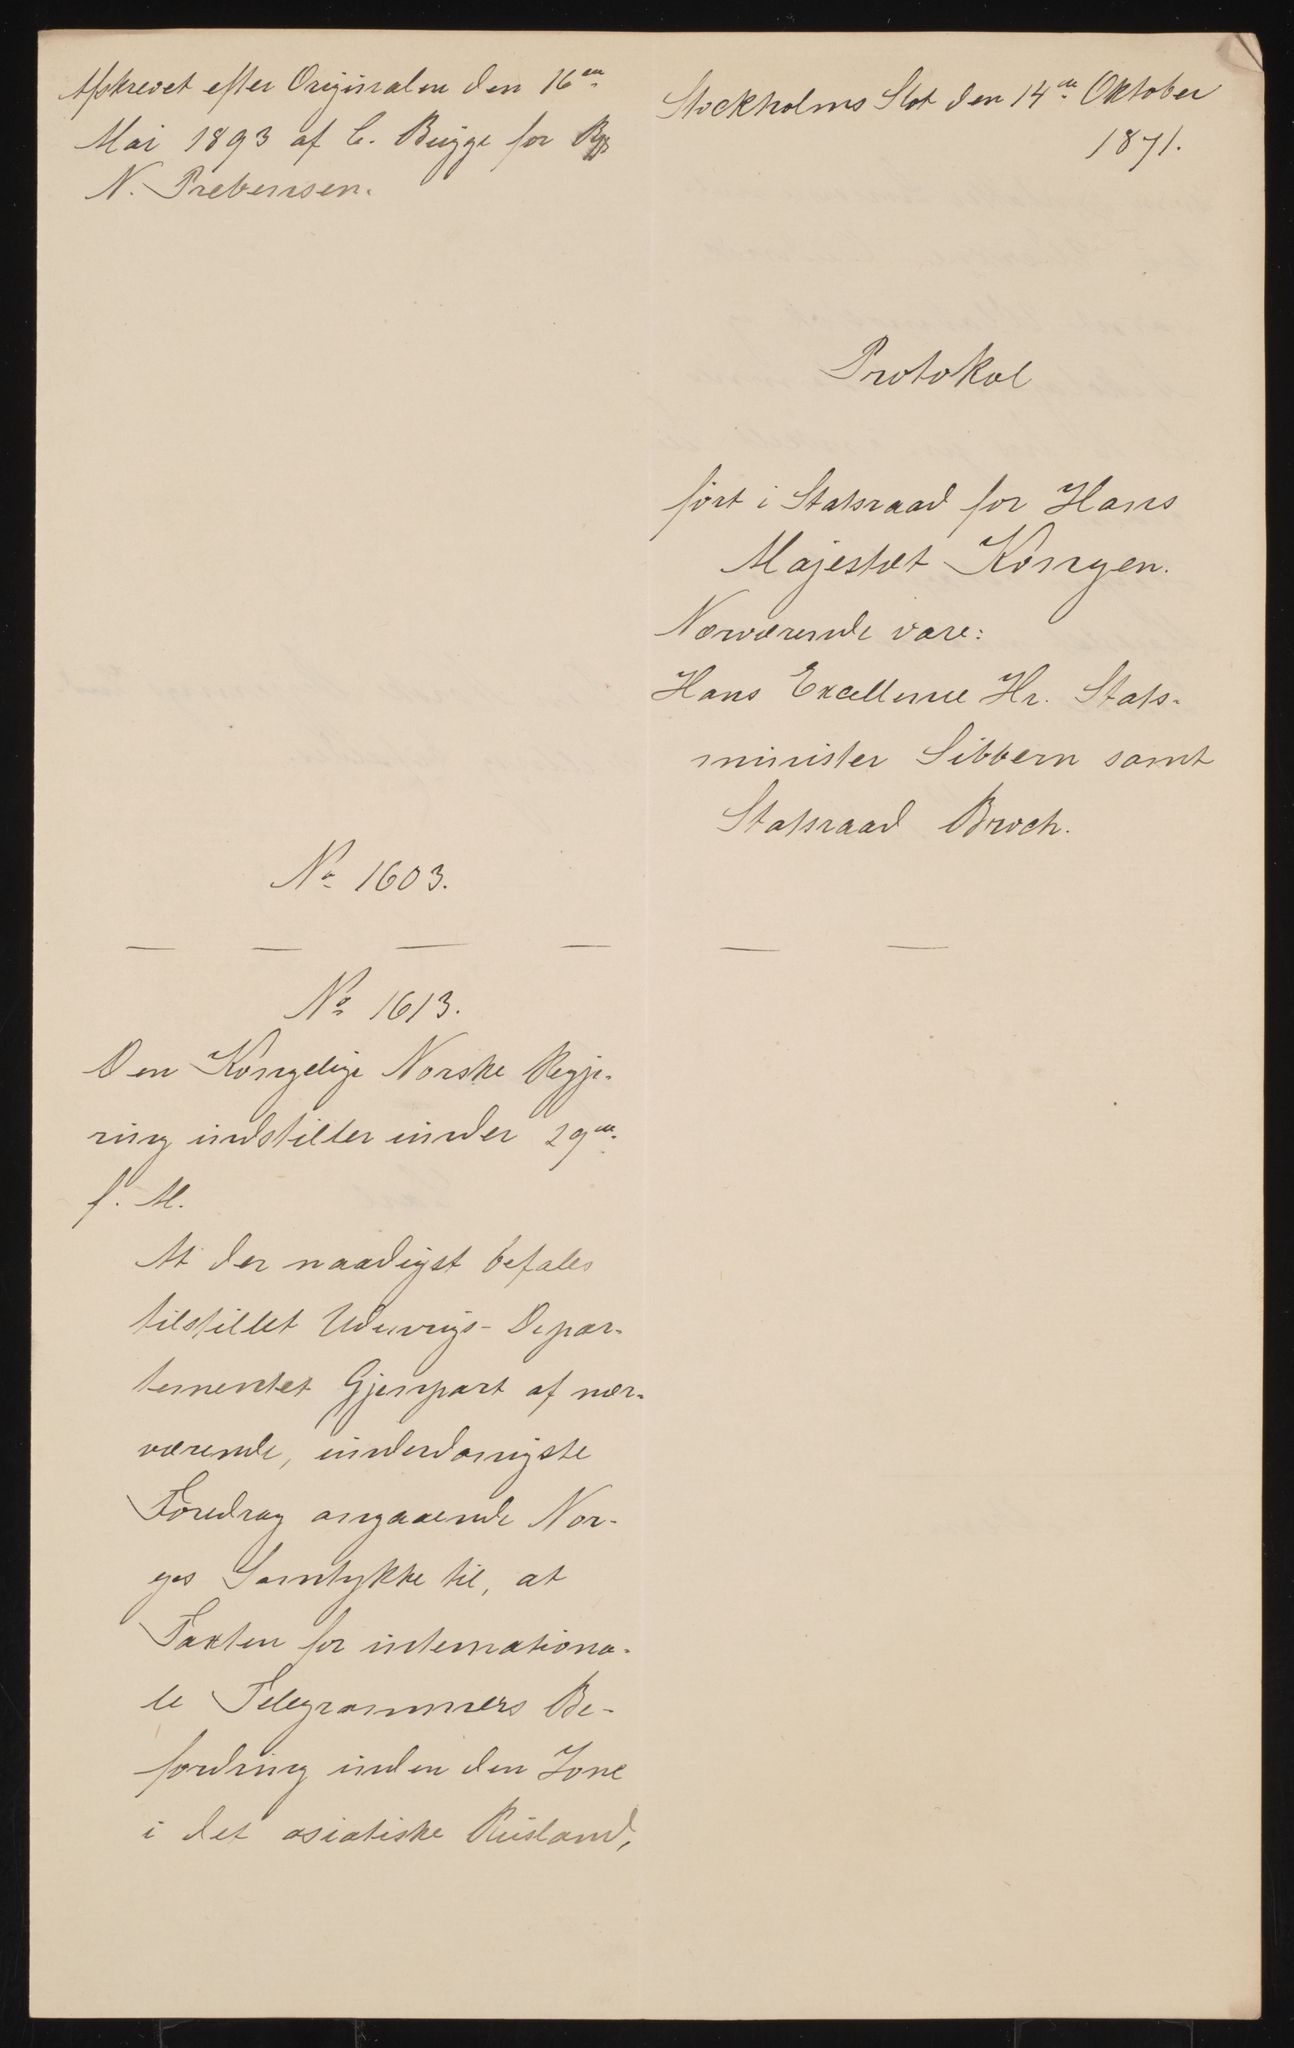 Afskrevet efter Originalen den 16de
Mai 1893 af C. Bugge for
N. Prebensen.
Stockholms Slot den 14de Oktober
1871.
Protokol
ført i Statsraad for Hans
Majestæt Kongen.
Nærværende vare:
Hans Excellence Hr. Stats-
minister Sibbern samt
Statsraad Broch.
No 1603.
— — — — — —
No 1613.
Den Kongelige Norske Regje-
ring indstiller under 29de
f. M.
At der naadigst befales
tilstillet Udenrigs-Depar-
tementet Gjenpart af nær-
værende, underdanigste
Foredrag angaaende Nor-
ges Samtykke til, at
Taxten for internationa-
le Telegrammers Be-
fordring inden den Zone
i det asiatiske Rusland,